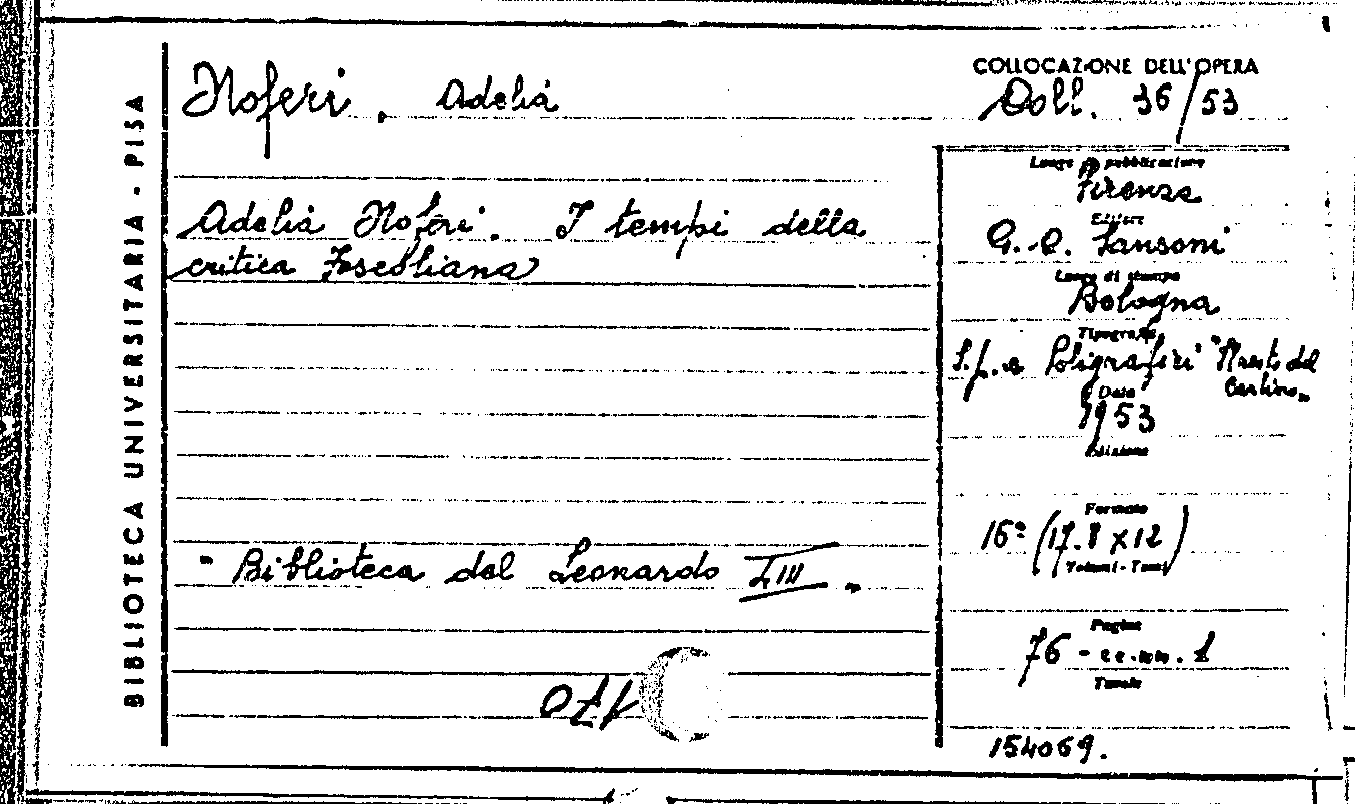 BIBLIOTECA UNIVERSITARIA - PISA
Noferi, Adelia
Adelia Noferi. I tempi della
critica Foscoliana
" Biblioteca del Leonardo LIII "
COLLOCAZIONE DELL'OPERA
Coll. 36/53
Luogo di pubblicazione
Firenze
Editore
G. C. Sansoni
Luogo di stampa
Bologna
Tipografia
S.p.a Poligrafici "Il Resto del
Carlino"
Data
1953
Edizione
Formato
16° (17.8 x 12)
Volumi - Tomi
Pagine
76 - cc.nn. 1
Tavole
154069.